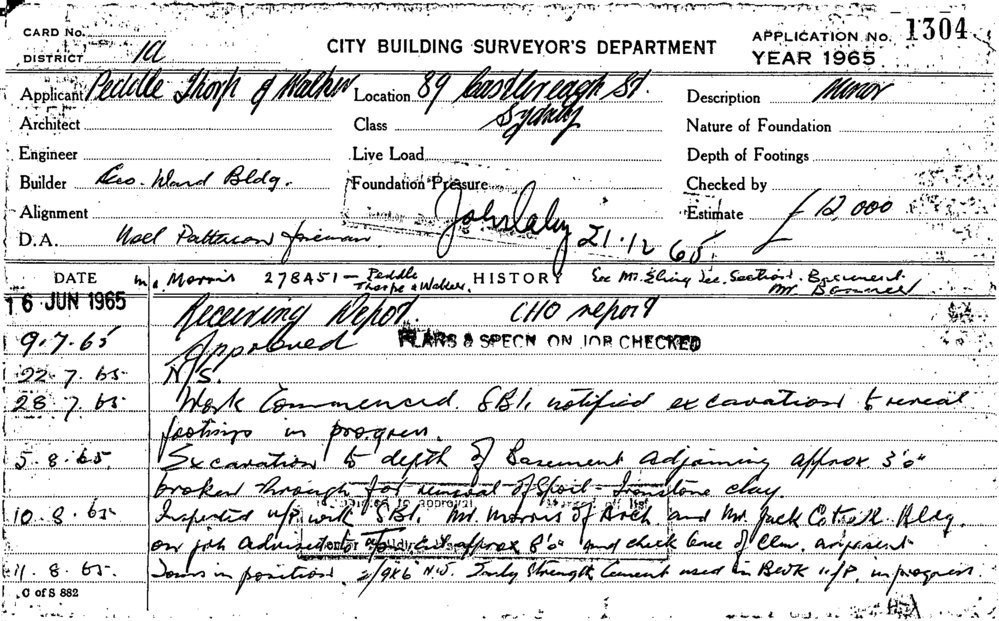 CARD No.
CITY BUILDING SURVEYOR'S DEPARTMENT
APPLICATION No. 1304
DISTRICT 1a
YEAR 1965
Applicant Peddle Thorp & Walker Location 89 Castlereagh St. Description Minor
Sydney
Architect Class Nature of Foundation
Engineer Live Load Depth of Footings
Builder Geo. Ward Bldg. Foundation Pressure Checked by
Alignment John Daly 21.12 65 Estimate £12,000
D.A. Noel Patterson foreman
DATE Morris 278451 — Peddle Thorpe & Walker. HISTORY See Mr. Section. Basement
Mr
16 JUN 1965 Receiving Depot. CHO report
9.7.65 Approved PLANS & SPECN ON JOB CHECKED
22.7.65 N/S.
28 7.65 Work Commenced. SBI. notified excavation to reveal
footings in progress.
5.8.65 Excavation to depth of Basement adjoining approx 3'0"
broken through for removal of spoil - Ironstone clay.
10.8.65 Inspected u/p work SBI. Mr. Morris of Arch and Mr. Jack Bldg.
on job advised to approx 8'0" and check base of Clm. adjacent
11.8.65 in position. 2/9x6 Strength Cement used in BWK u/P. in progress
C of S 882